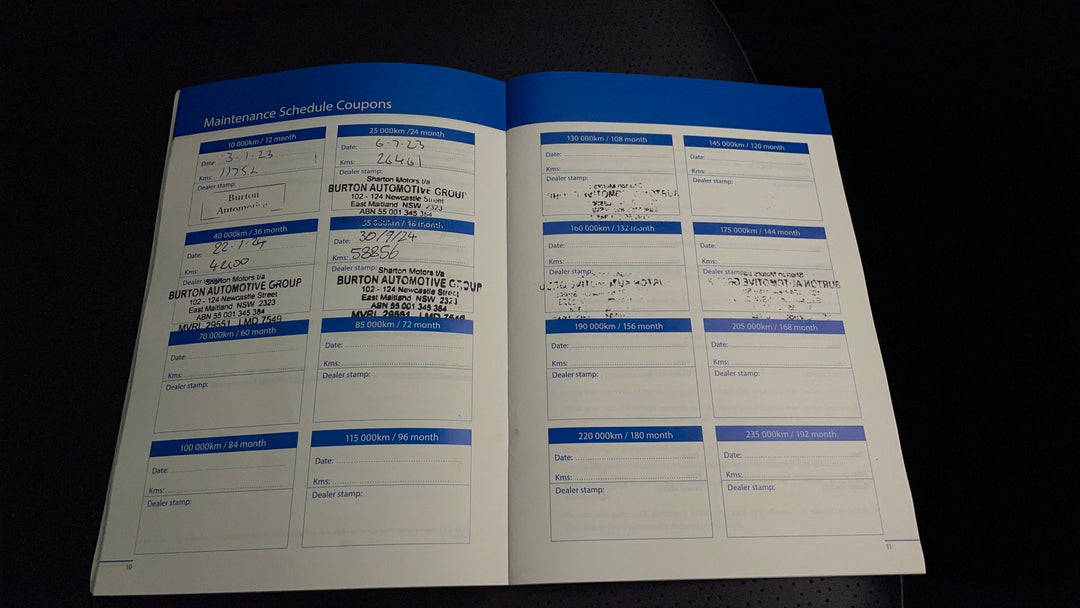 Maintenance Schedule Coupons
10 000km / 12 month
Date: 3-1-23
Kms:
Dealer stamp:
Burton
Automotive
25 000km /24 month
Date: 6-7-23
Kms: 26461
Dealer stamp:
Sharton Motors t/a
BURTON AUTOMOTIVE GROUP
102 - 124 Newcastle Street
East Maitland NSW 2323
ABN 55 001 345 384
40 000km / 36 month
Date: 22-1-24
Kms:
Sharton Motors t/a
BURTON AUTOMOTIVE GROUP
102 - 124 Newcastle Street
East Maitland NSW 2323
ABN 55 001 345 384
MVRL 29551 LMD 7549
Date: 30/9/24
Kms: 58856
Dealer stamp:
Sharton Motors t/a
BURTON AUTOMOTIVE GROUP
102 - 124 Newcastle Street
East Maitland NSW 2323
ABN 55 001 345 384
MVRL 29551 LMD 7549
70 000km / 60 month
Date:
Kms:
Dealer stamp:
85 000km / 72 month
Date:
Kms:
Dealer stamp:
100 000km / 84 month
Date:
Kms:
Dealer stamp:
115 000km / 96 month
Date:
Kms:
Dealer stamp:
10
130 000km / 108 month
Date:
Kms:
Dealer stamp:
145 000km / 120 month
Date:
Kms:
Dealer stamp:
160 000km / 132 month
Date:
Kms:
Dealer stamp:
175 000km / 144 month
Date:
Kms:
Dealer stamp:
190 000km / 156 month
Date:
Kms:
Dealer stamp:
205 000km / 168 month
Date:
Kms:
Dealer stamp:
220 000km / 180 month
Date:
Kms:
Dealer stamp:
235 000km / 192 month
Date:
Kms:
Dealer stamp:
11